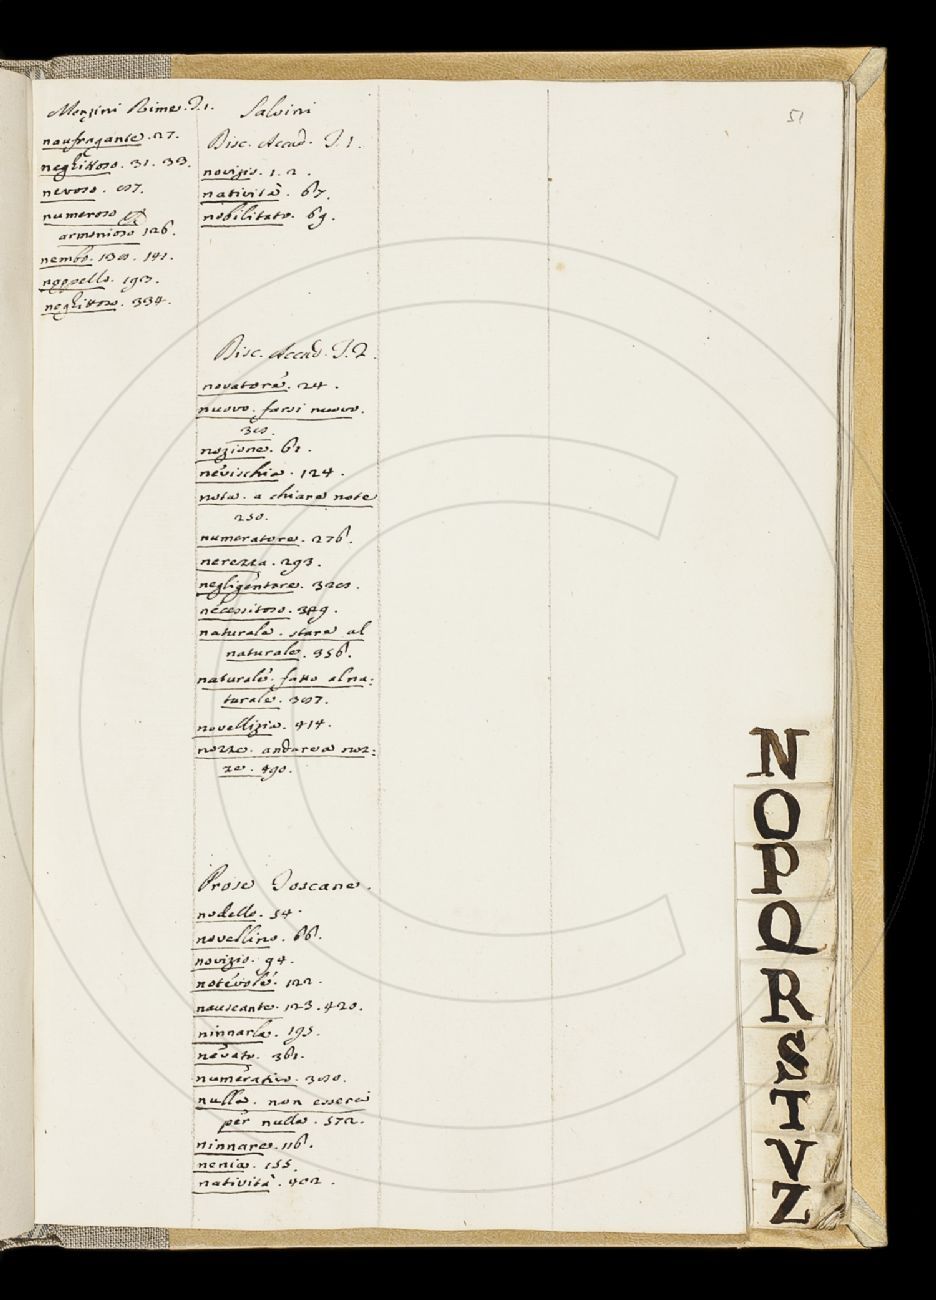 51
Menzini Rime. T.1.
naufragante. 27.
neghittoso. 31. 33.
nevoso.
numeroso
armonioso 126.
nembo. 141.
nappello. 193.
neghittoso. 334.
Salvini
Disc. Accad. T. 1.
novizio. 1. 2.
natività. 67.
nobilitato. 69.
Disc. Accad. T. 2.
novatore. 24.
nuovo. farsi nuovo.
nozione. 61.
nevischia. 124.
nota. a chiare note
250.
numeratore. 276.
nerezza. 293.
negligentare.
necessitoso.
naturale. stare al
naturale. 356.
naturale. fatto al na:
turale.
novellizia. 414.
nozze. andare a noz:
ze. 490.
Prose Toscane.
nodello. 54.
novellino. 66.
novizio. 94.
notevole. 122.
nauseante. 123. 420.
ninnarla. 195.
nevato. 361.
numerativo.
nulla. non esserci
per nulla. 572.
ninnare. 116.
nenia. 155.
natività. 402.
N
O
P
Q
R
S
T
V
Z